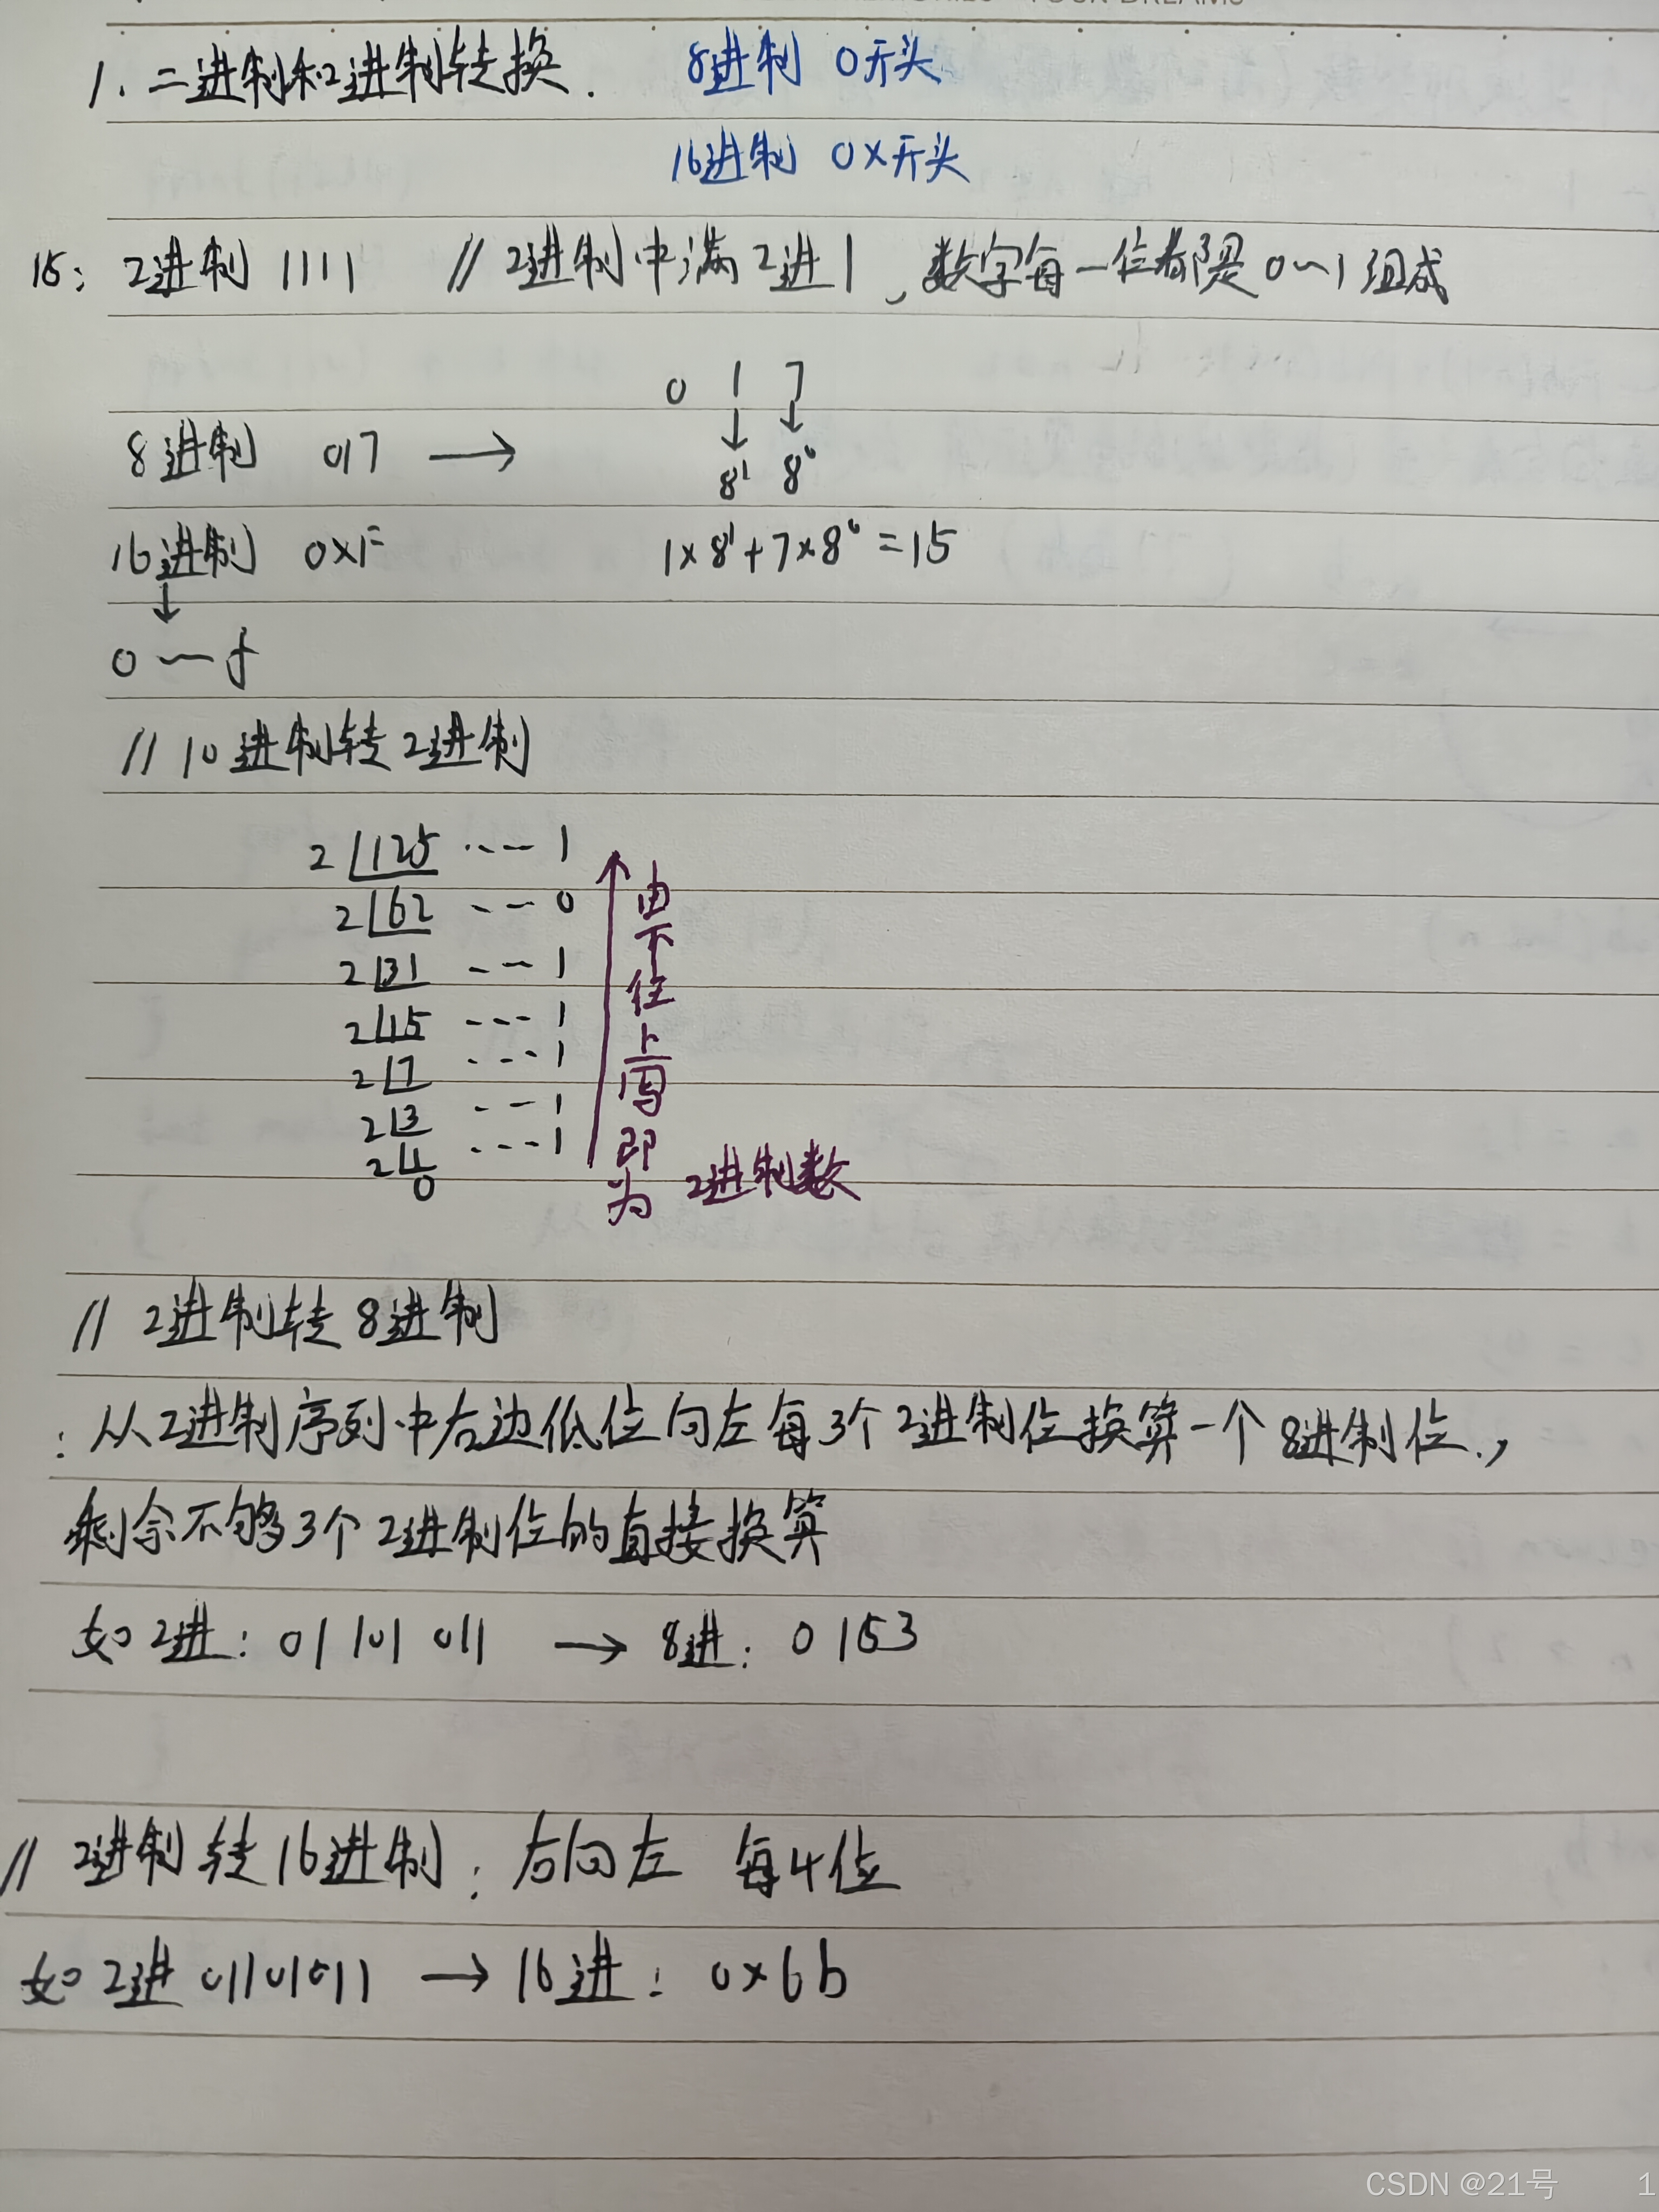 1. 二进制和2进制转换. 8进制 0开头
16进制 0x开头
15: 2进制 1111 // 2进制中满2进1, 数字每一位都是0~1组成
0 1 7
8进制 017 → 8¹ 8⁰
16进制 0xF 1×8¹+7×8⁰=15
↓
0~f
// 10进制转2进制
2 125 ---- 1
2 62 --- 0
2 31 --- 1
2 15 ---- 1
2 7 ---- 1
2 3 --- 1
2 1 ---- 1
0
由下往上写即为 2进制数
// 2进制转8进制
: 从2进制序列中右边低位向左每3个2进制位换算一个8进制位.,
剩余不够3个2进制位的直接换算
如2进: 01 101 011 → 8进: 0153
// 2进制转16进制: 右向左 每4位
如2进 01101011 → 16进: 0x6b
CSDN @21号 1